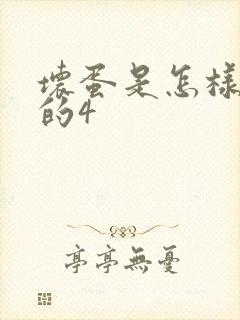 壞蛋是怎樣
的4
亭亭無憂